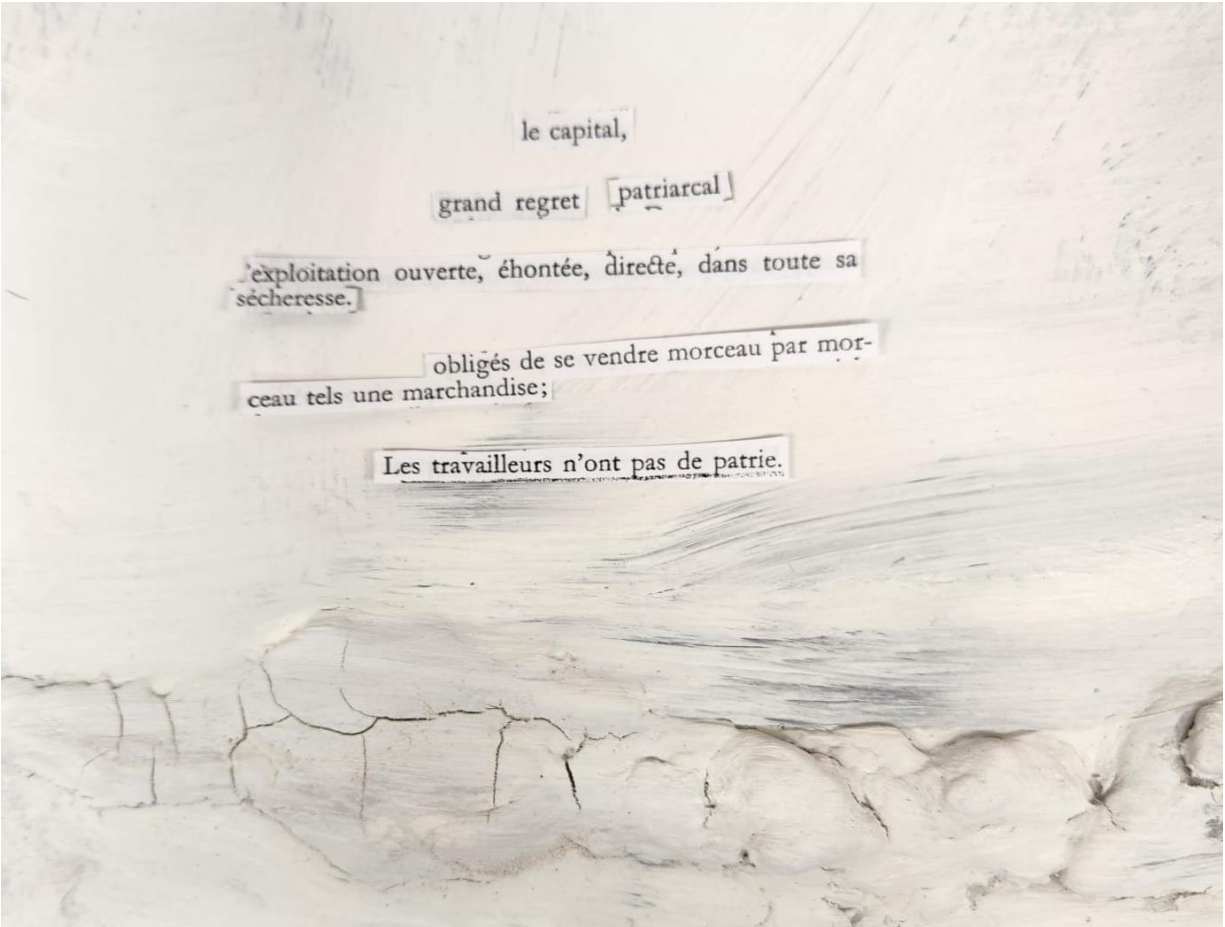 le capital,
grand regret patriarcal
'exploitation ouverte, éhontée, directe, dans toute sa
sécheresse.
obligés de se vendre morceau par mor-
ceau tels une marchandise;
Les travailleurs n'ont pas de patrie.